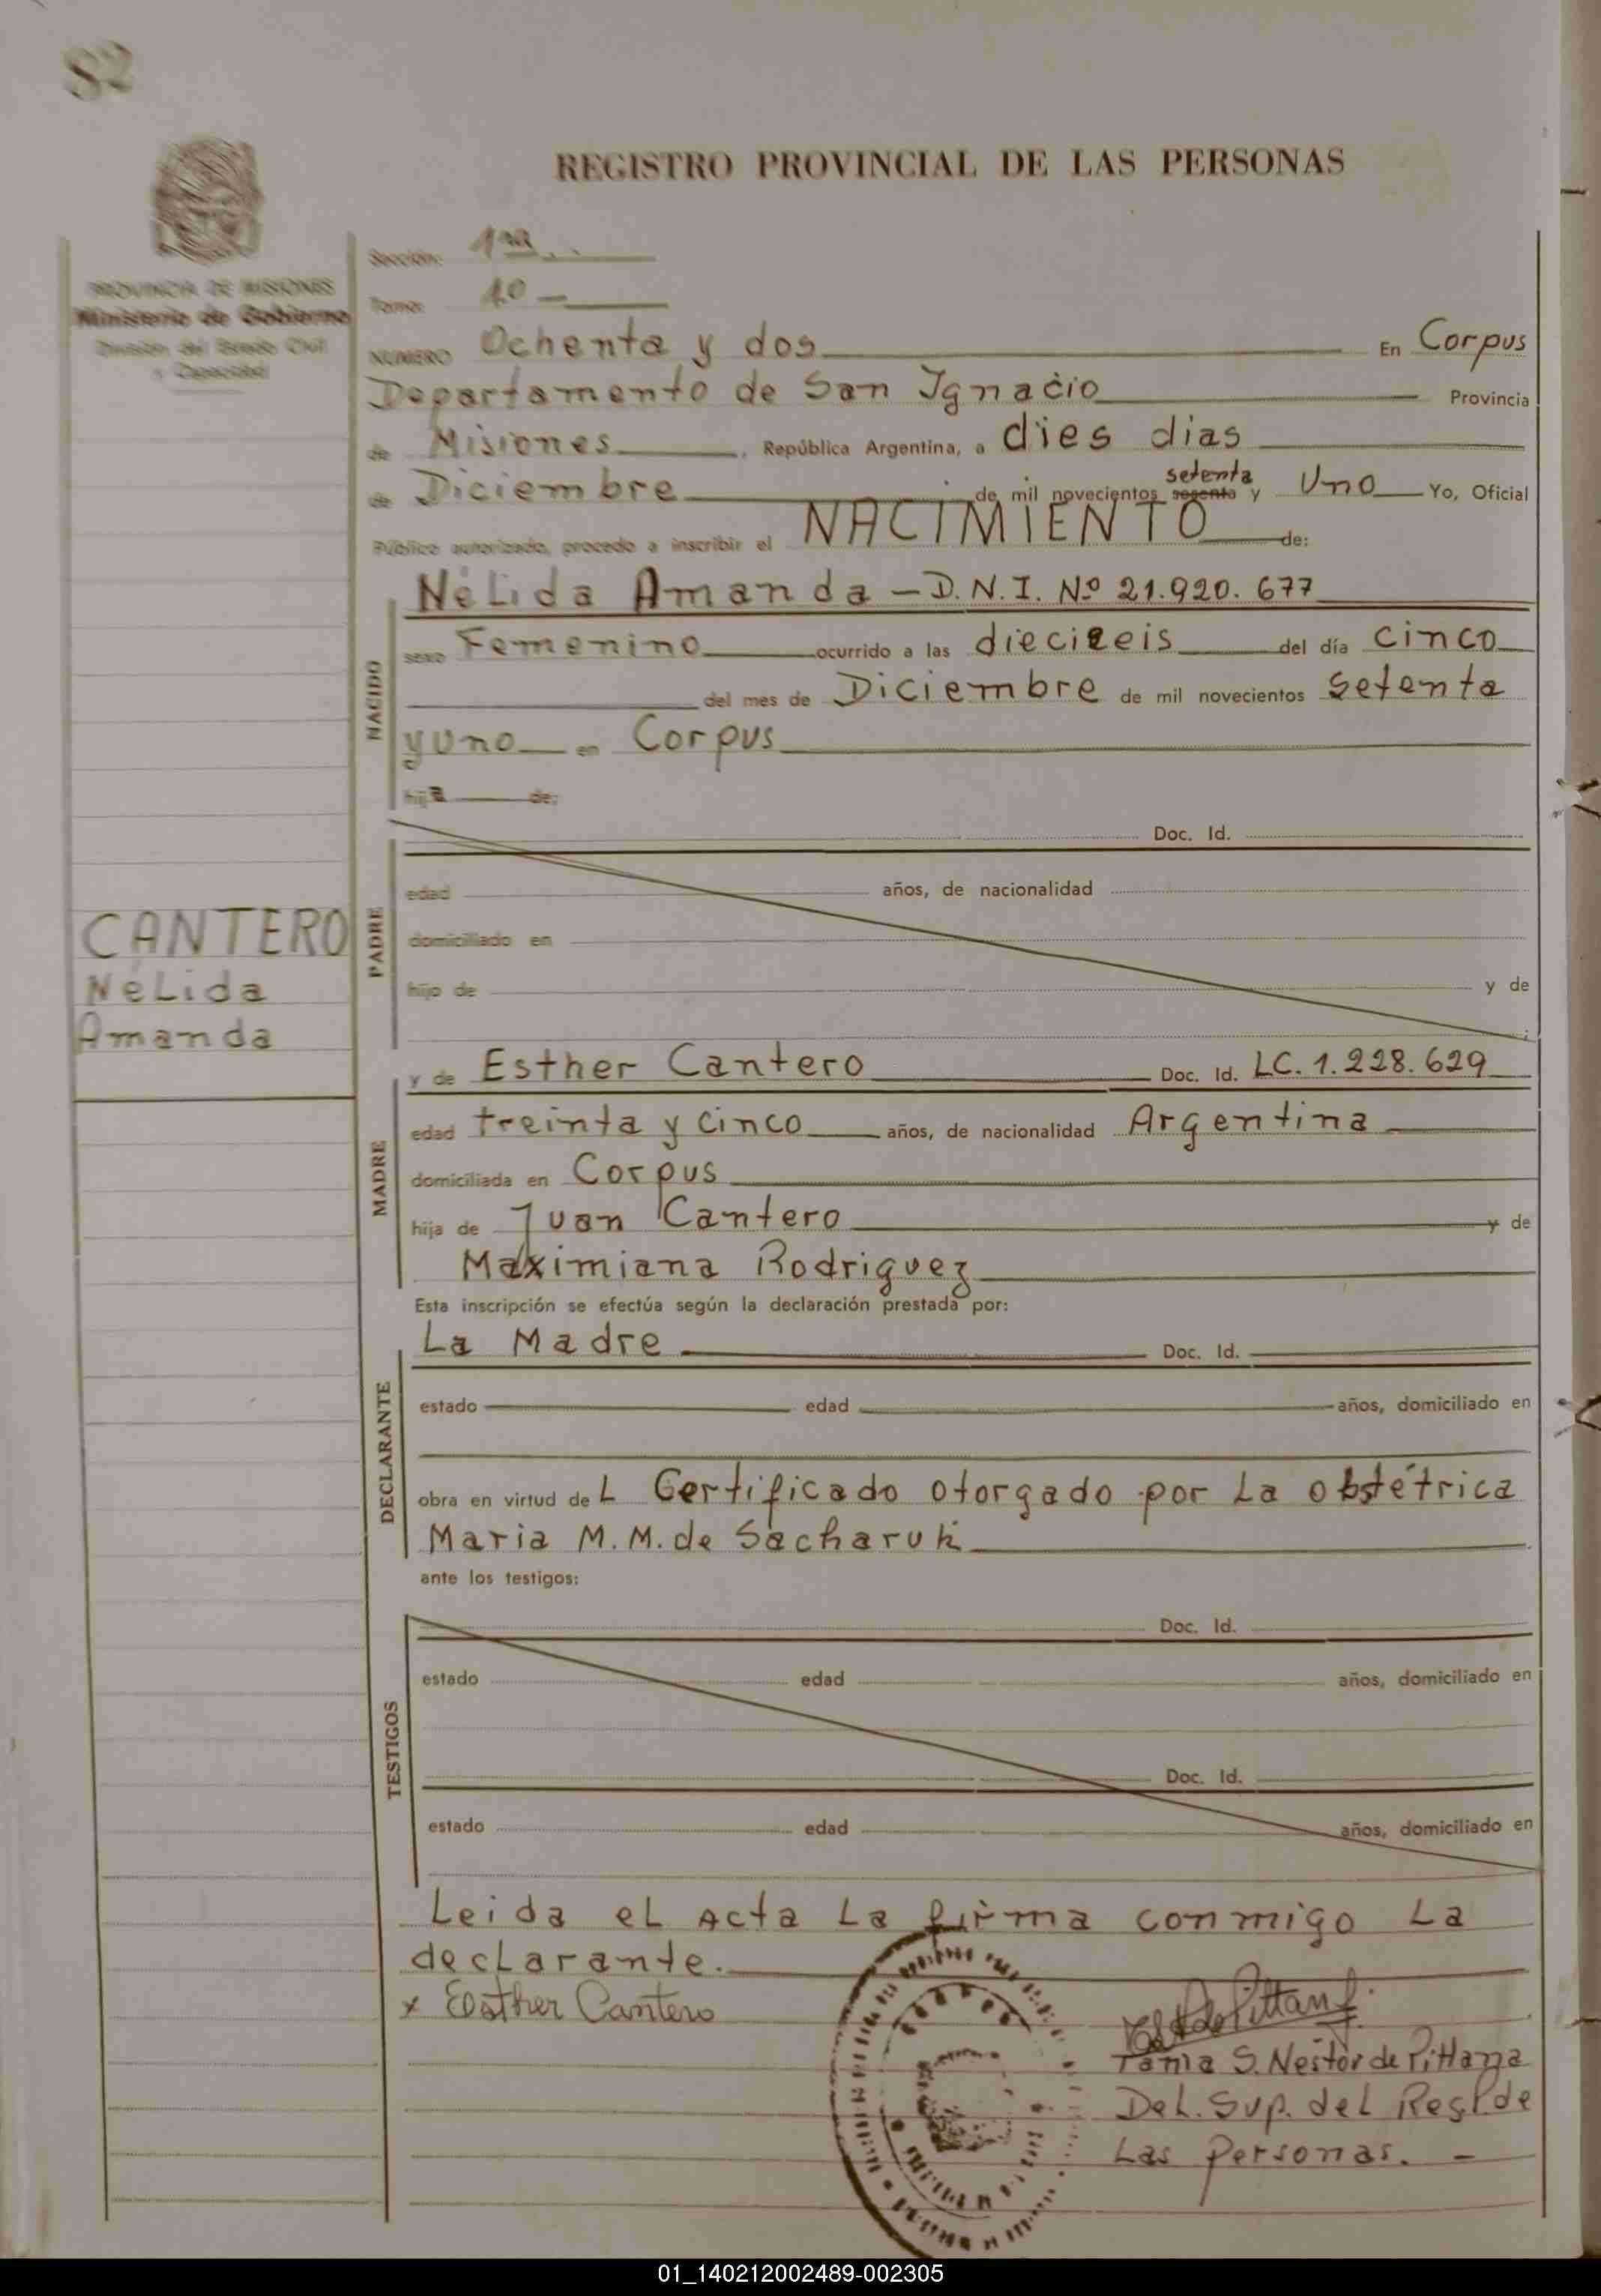 82
REGISTRO PROVINCIAL DE LAS PERSONAS
PROVINCIA DE MISIONES
Ministerio de Gobierno
División del Estado Civil
y Capacidad
Sección: 1ra
Tomo: 10
NUMERO Ochenta y dos En Corpus
Departamento de San Ignacio Provincia
de Misiones, República Argentina, a dies dias
de Diciembre de mil novecientos sesenta setenta y Uno Yo, Oficial
Público autorizado, procedo a inscribir el NACIMIENTO de:
NACIDO
Nélida Amanda - D.N.I. Nº 21.920.677
sexo Femenino ocurrido a las dieciseis del día cinco
del mes de Diciembre de mil novecientos setenta
y uno en Corpus
hija de:
PADRE
Doc. Id.
edad años, de nacionalidad
domiciliado en
hijo de y de
CANTERO
Nélida
Amanda
MADRE
y de Esther Cantero Doc. Id. LC. 1.228.629
edad treinta y cinco años, de nacionalidad Argentina
domiciliada en Corpus
hija de Juan Cantero y de
Maximiana Rodriguez
Esta inscripción se efectúa según la declaración prestada por:
DECLARANTE
La Madre Doc. Id.
estado edad años, domiciliado en
obra en virtud de L Certificado otorgado por La obstétrica
Maria M. M. de Sacharuk
ante los testigos:
TESTIGOS
Doc. Id.
estado edad años, domiciliado en
Doc. Id.
estado edad años, domiciliado en
Leida el Acta La firma conmigo La
declarante.
x Esther Cantero
Tania S. Nestor de Pittana
Del. Sup. del Reg. de
Las Personas. -
01_140212002489-002305